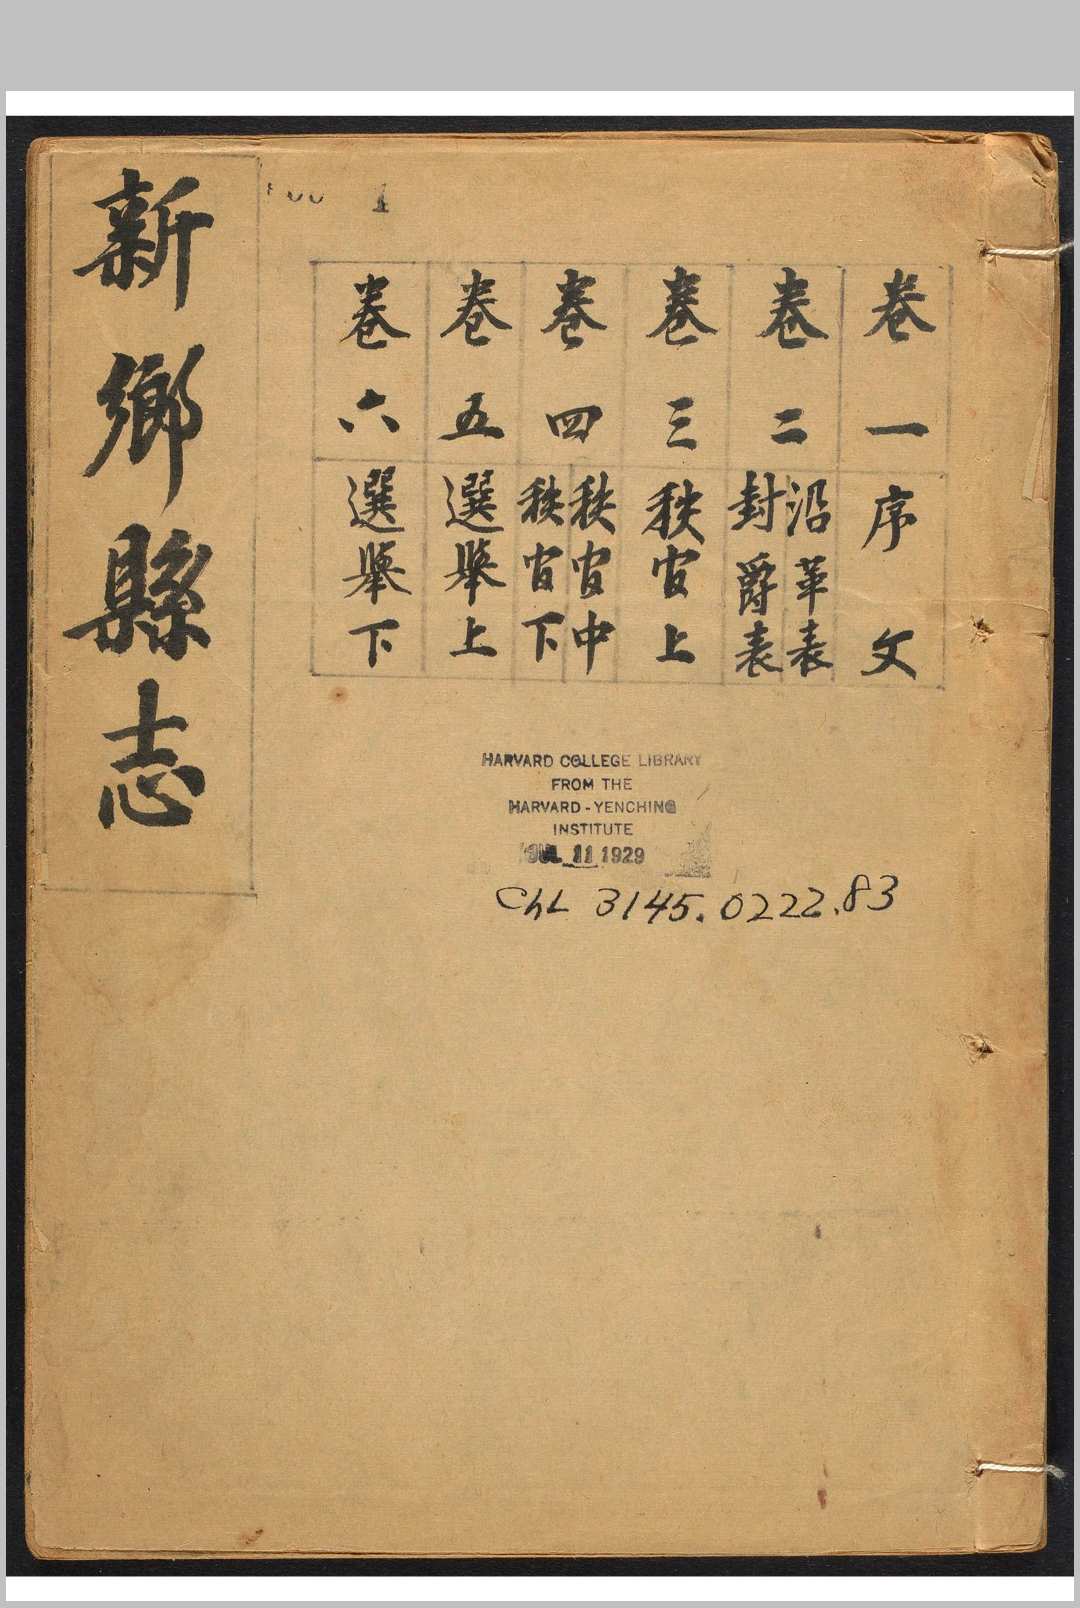 新鄉縣志
卷一 序文
卷二 沿革表
封爵表
卷三 秩官上
卷四 秩官中
秩官下
卷五 選舉上
卷六 選舉下
HARVARD COLLEGE LIBRARY
FROM THE
HARVARD-YENCHING
INSTITUTE
JUL 11 1929
ChL 3145.0222.83